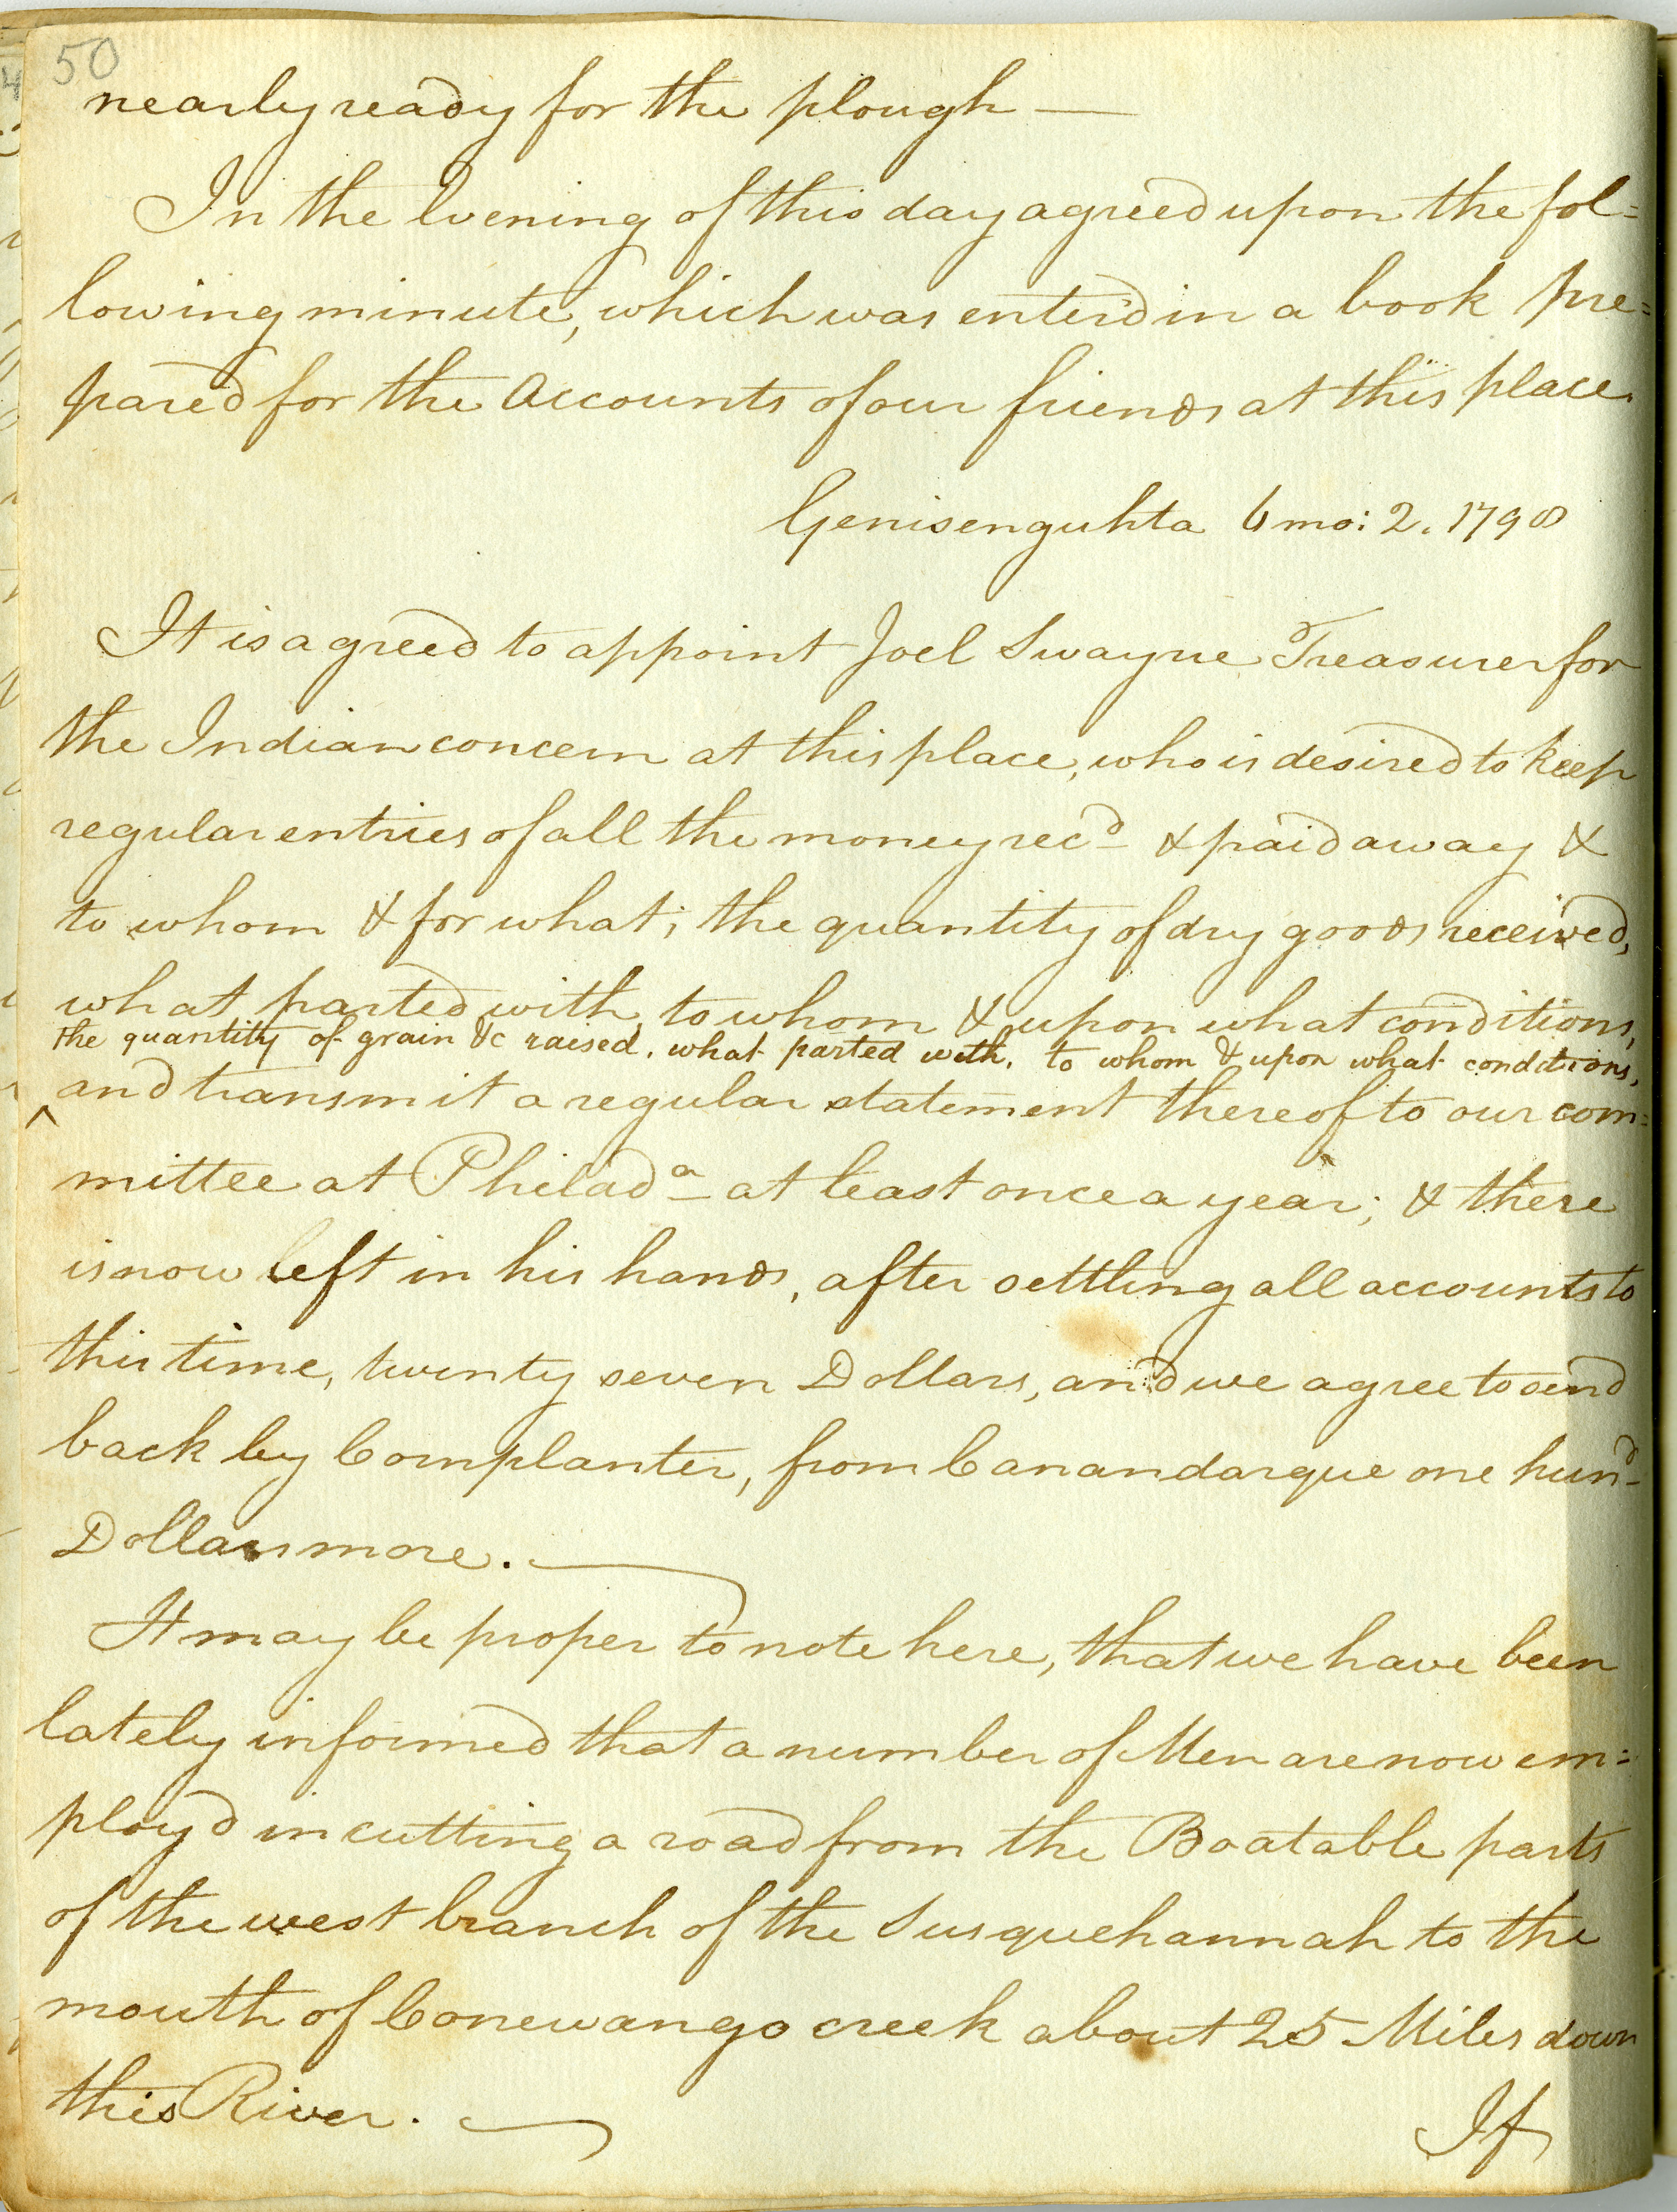 50
nearly ready for the plough —
In the Evening of this day agreed upon the fol=
lowing minute, which was enter'd in a book pre=
pared for the Accounts of our friends at this place.
Genisenguhta 6 mo: 2. 1798
It is agreed to appoint Joel Swayne Treasurer for
the Indian concern at this place, who is desired to keep
regular entries of all the money recd & paid away &
to whom & for what; the quantity of dry goods received,
what parted with to whom & upon what conditions,
the quantity of grain &c raised, what parted with, to whom & upon what conditions,
^ and transmit a regular statement thereof to our com=
mittee at Philada at least once a year; & there
is now left in his hands, after settling all accounts to
this time, twenty seven Dollars, and we agree to send
back by Cornplanter, from Canandarque one hund
Dollars more. —
It may be proper to note here, that we have been
lately informed that a number of Men are now em=
ploy'd in cutting a road from the Boatable parts
of the west branch of the Susquehannah to the
mouth of Conewango creek about 25 Miles down
this River. —
If